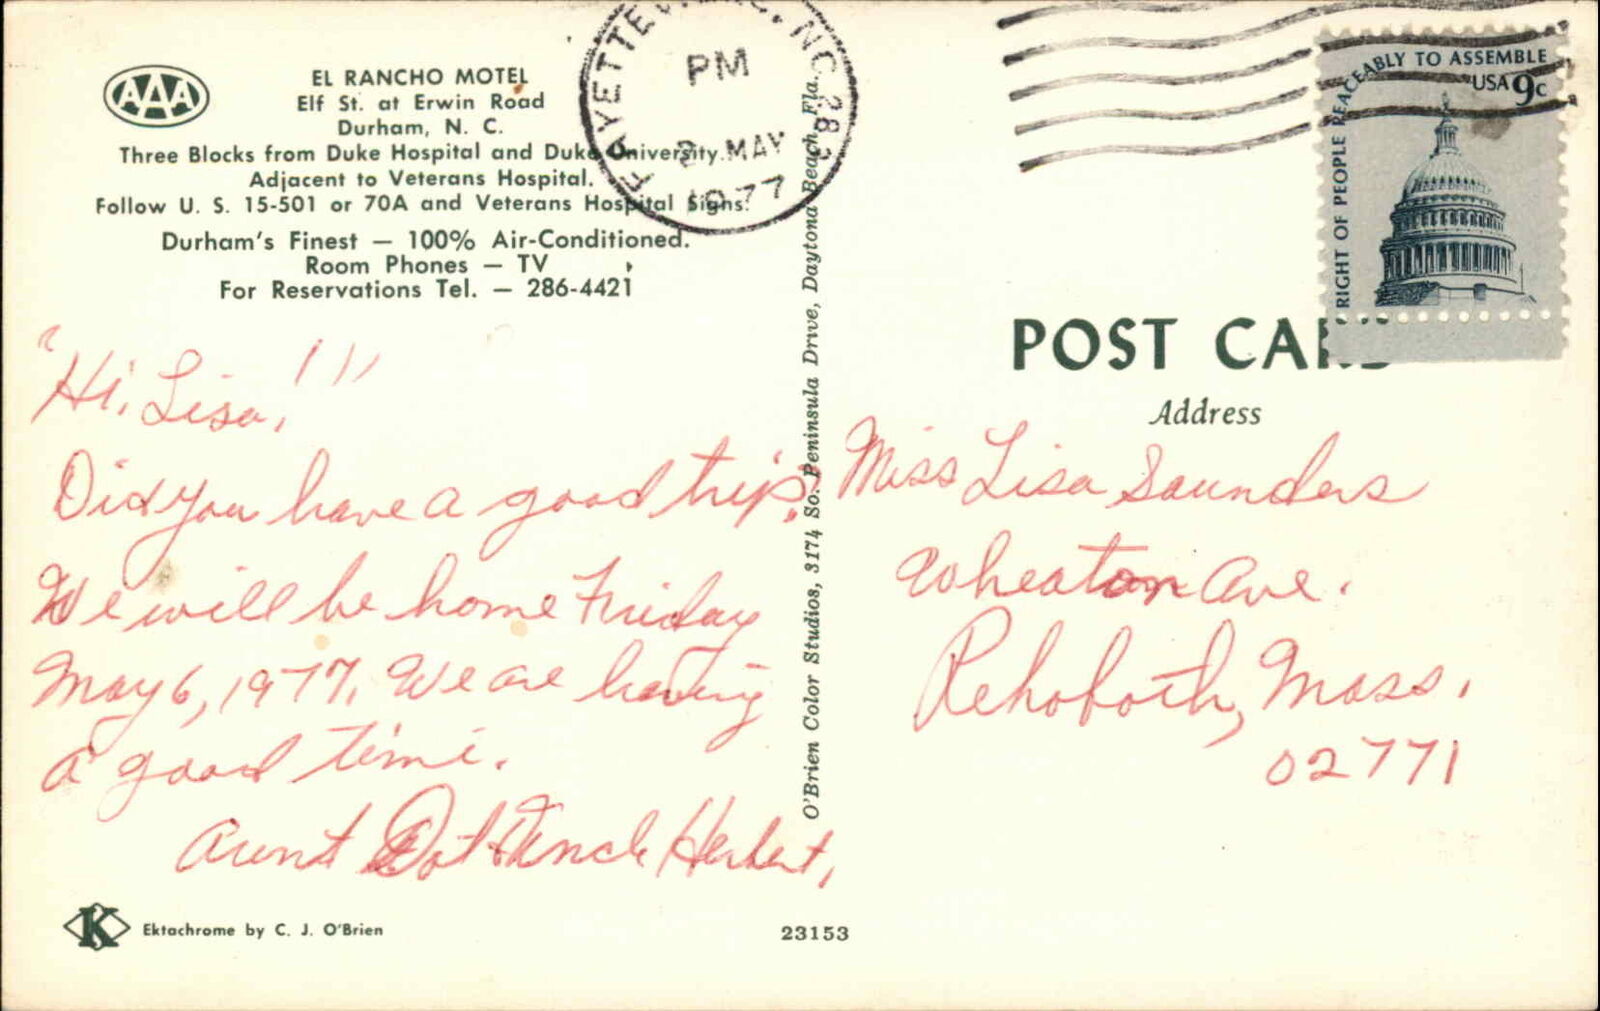 AAA
EL RANCHO MOTEL
Elf St. at Erwin Road
Durham, N. C.
Three Blocks from Duke Hospital and Duke University.
Adjacent to Veterans Hospital.
Follow U. S. 15-501 or 70A and Veterans Hospital Signs.
Durham's Finest — 100% Air-Conditioned.
Room Phones — TV
For Reservations Tel. — 286-4421
"Hi, Lisa,!!!
Did you have a good trip?
We will be home Friday
May 6, 1977. We are having
a good time.
Aunt Dot & Uncle Herbert,
K
Ektachrome by C. J. O'Brien
23153
O'Brien Color Studios, 3174 So. Peninsula Drive, Daytona Beach, Fla.
FAYETTEVILLE, NC 283
PM
2 MAY
1977
RIGHT OF PEOPLE PEACEABLY TO ASSEMBLE
USA 9c
POST CARD
Address
Miss Lisa Saunders
Wheaton Ave.
Rehoboth, Mass.
02771